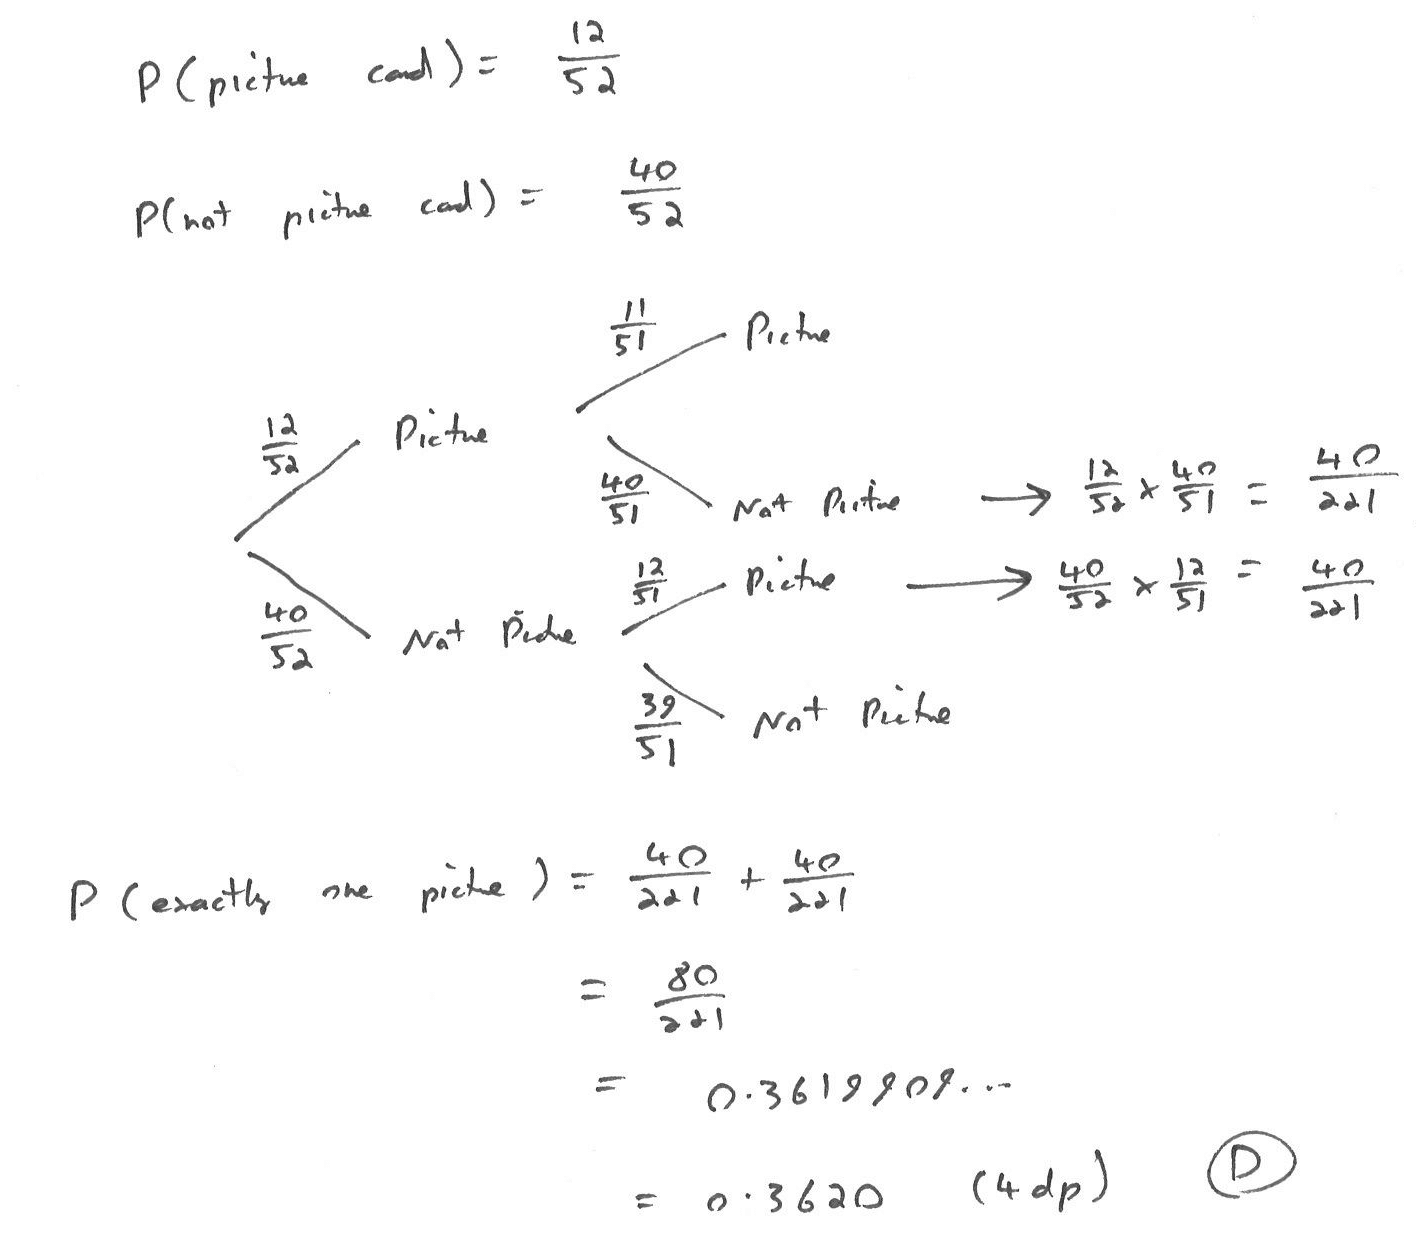 P(picture card) = 12/52
P(not picture card) = 40/52
11/51 Picture
12/52 Picture
40/51 Not Picture → 12/52 × 40/51 = 40/221
12/51 Picture → 40/52 × 12/51 = 40/221
40/52 Not Picture
39/51 Not Picture
P(exactly one picture) = 40/221 + 40/221
= 80/221
= 0.3619909...
= 0.3620 (4dp) D